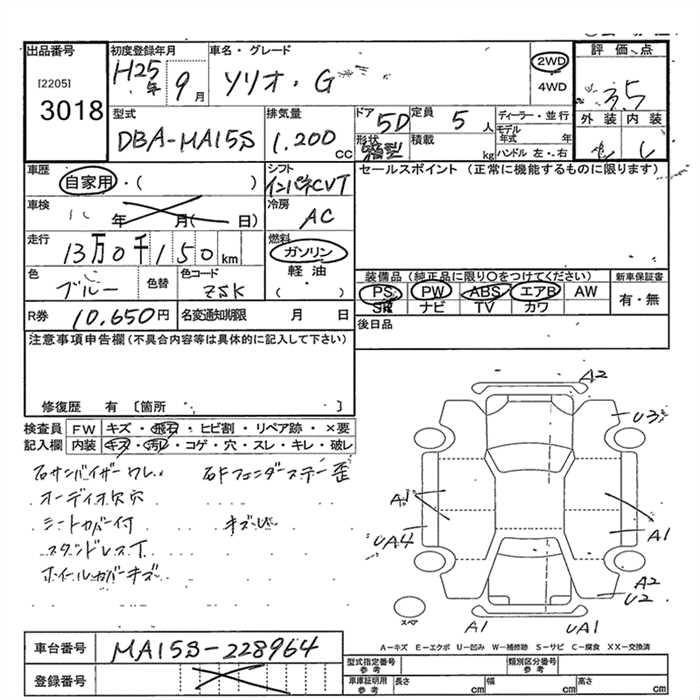 出品番号
[2205]
3018
初度登録年月
H25年 9月
車名・グレード
ソリオ・G
2WD
4WD
評価点
3.5
外装 内装
型式
DBA-MA15S
排気量
1.200 cc
ドア
5D
形状
箱型
定員
5人
積載
kg
ディーラー・並行
モデル年式 年
ハンドル 左・右
車歴
自家用・( )
シフト
インパネCVT
セールスポイント (正常に機能するものに限ります)
車検
年 月( 日)
冷房
AC
走行
13万0千150km
燃料
ガソリン
軽油
( )
色
ブルー
色替
色コード
ZSK
装備品 (純正品に限り○をつけてください)
PS PW ABS エアB AW
SR ナビ TV カワ
新車保証書
有・無
R券
10,650円
名変通知期限 月 日
後日品
注意事項申告欄 (不具合内容等は具体的に記入して下さい)
修復歴 有 〔箇所 〕
検査員記入欄
FW キズ・飛石・ヒビ割・リペア跡・×要
内装 キズ・汚レ・コゲ・穴・スレ・キレ・破レ
右サンバイザーワレ 右Fフェンダーステー歪
オーディオ欠穴
シートカバー付 キズU
スタンドレス
ホイールカバーキズ
A2
U3
A1
UA4
A1
A2
U2
スペア
A1
UA1
車台番号
MA15S-228964
登録番号
A-キズ E-エクボ U-凹み W-補修跡 S-サビ C-腐食 XX-交換済
型式指定番号 参考
類別区分番号 参考
車庫証明用 参考
長さ cm
幅 cm
高さ cm